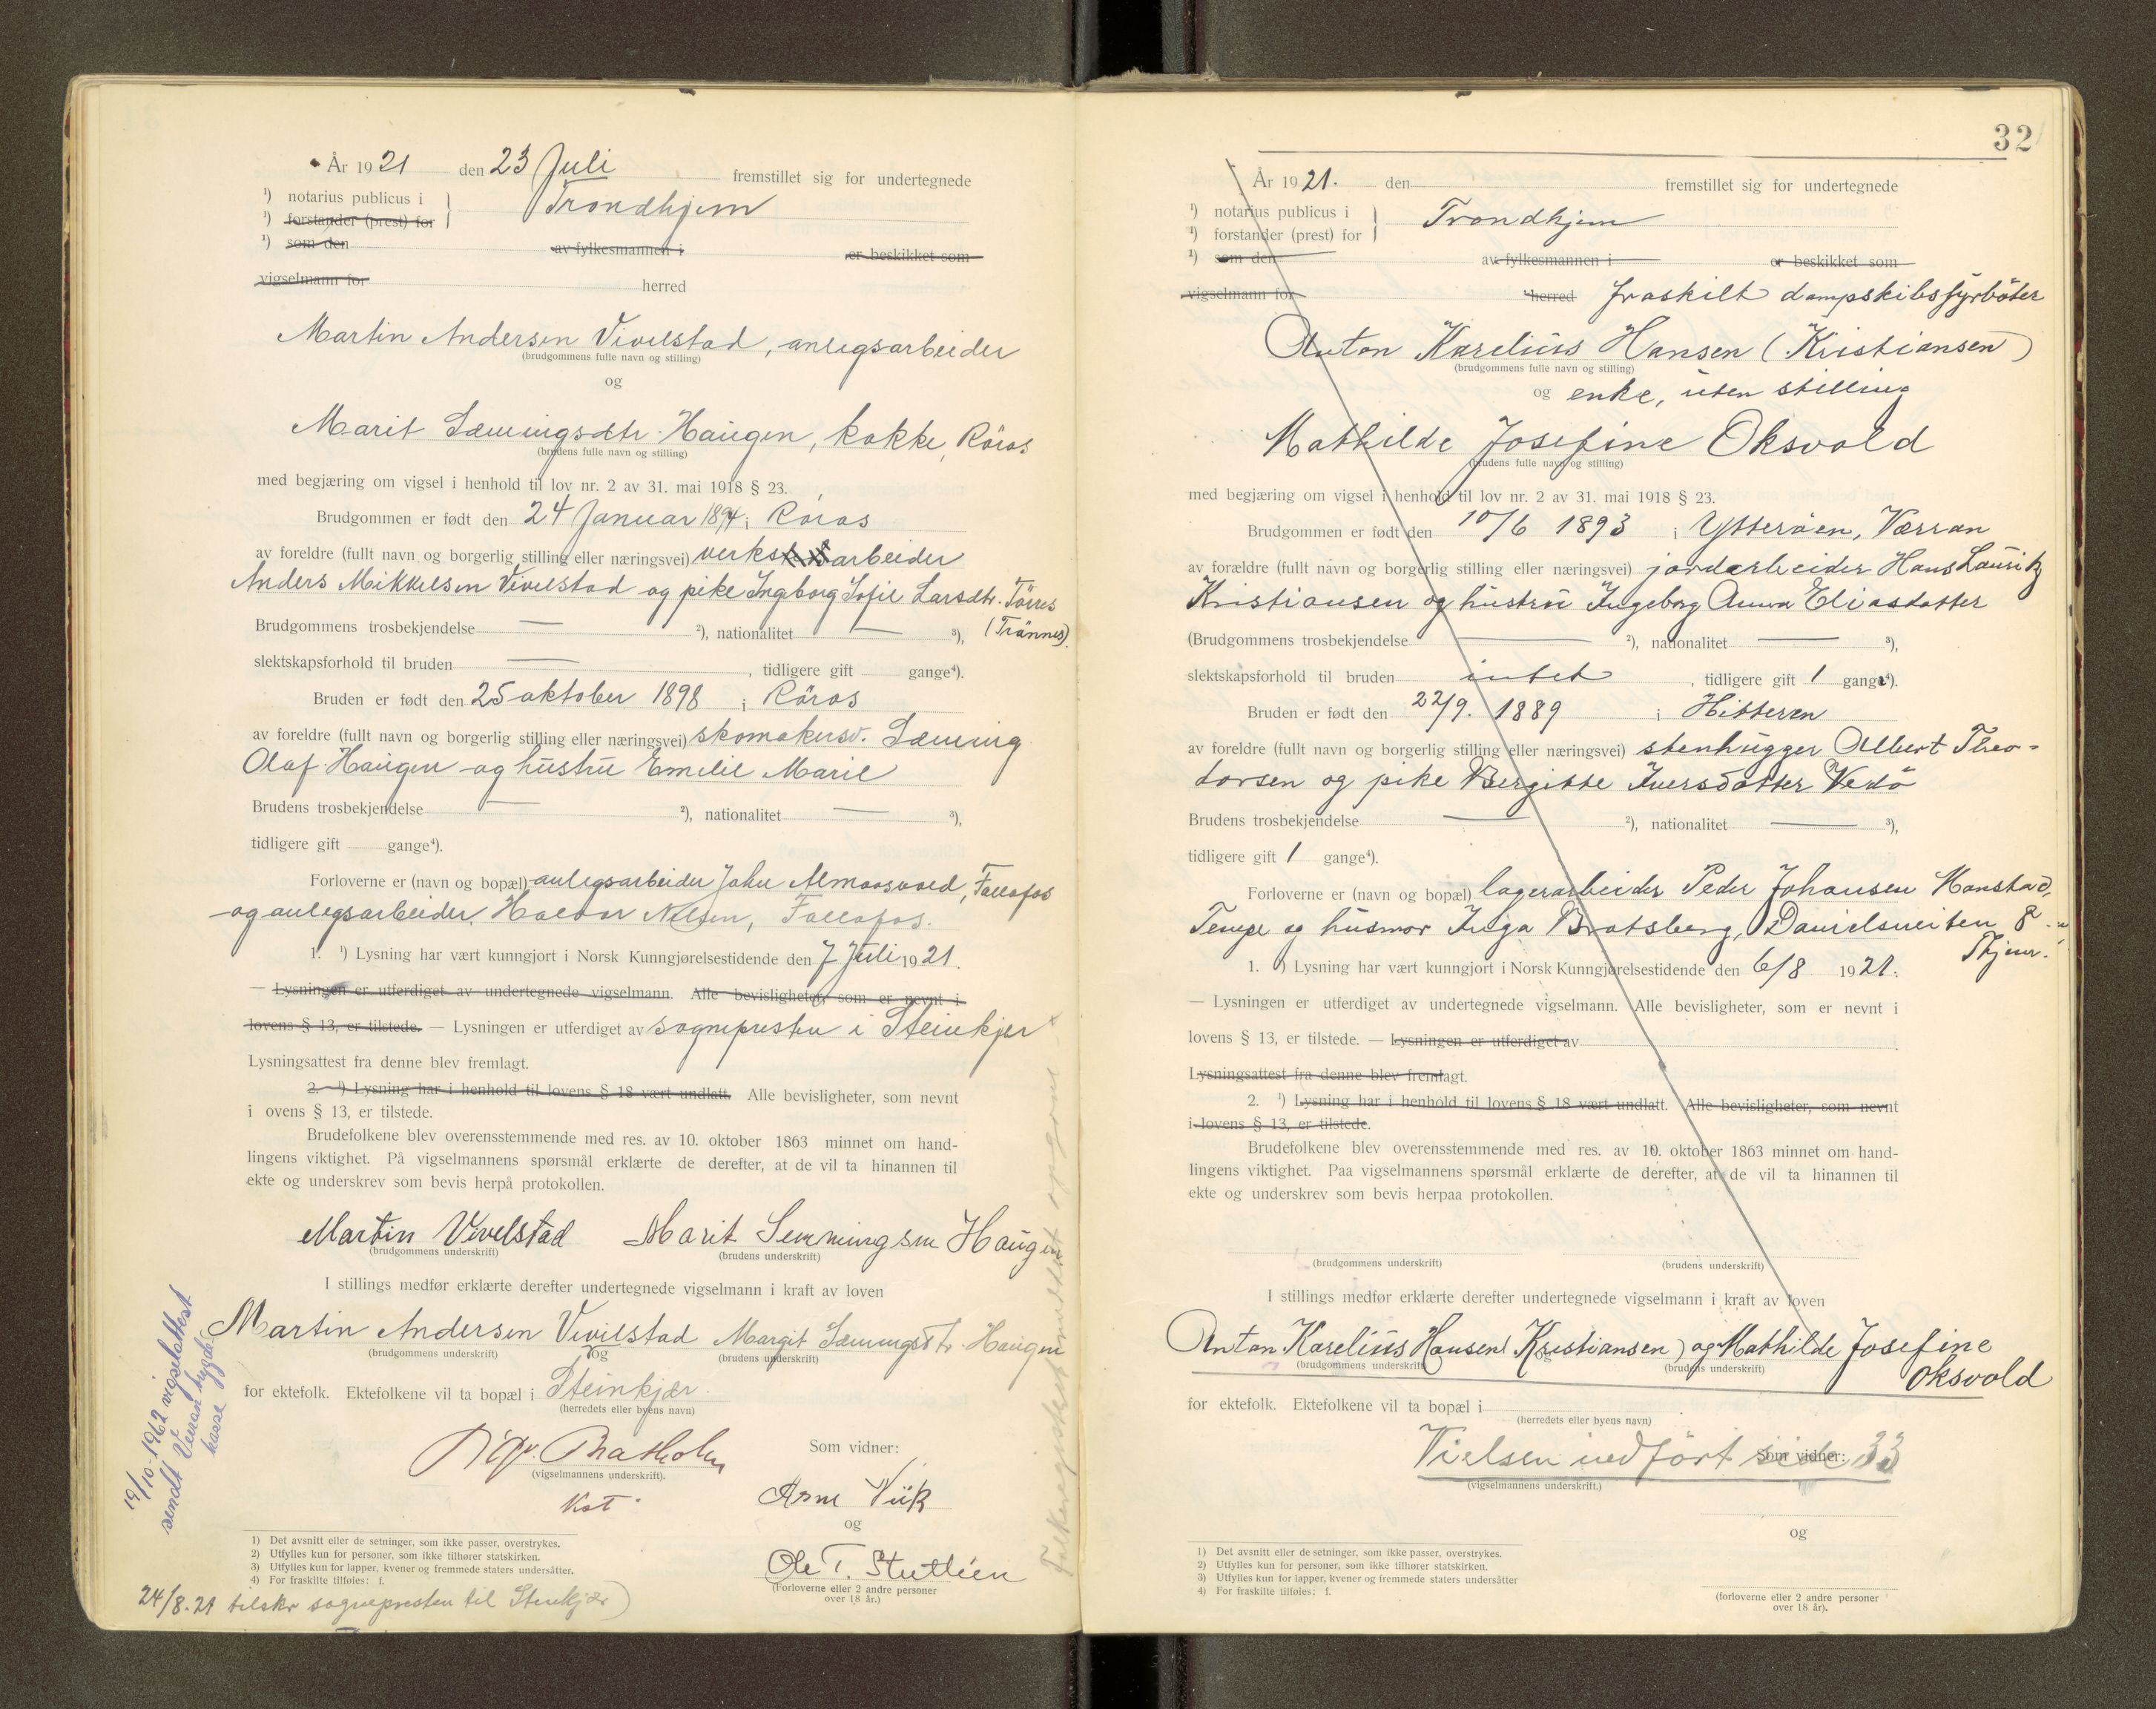 År 1921 den 23 Juli fremstillet sig for undertegnede
¹) notarius publicus i
Trondhjem
¹) forstander (prest) for
¹) som den av fylkesmannen i er beskikket som
vigselmann for herred
Martin Andersen Vivelstad, anlegsarbeider
(brudgommens fulle navn og stilling)
og
Marit Sæmingsdtr. Haugen, kokke, Röros
(brudens fulle navn og stilling)
med begjæring om vigsel i henhold til lov nr. 2 av 31. mai 1918 § 23.
Brudgommen er født den 24 Januar 1894 i Röros
av foreldre (fullt navn og borgerlig stilling eller næringsvei) verks arbeider
Anders Mikkelsen Vivelstad og pike Ingborg Sofie Larsdtr. Törres
(Trönnes).
Brudgommens trosbekjendelse — ²), nationalitet — ³),
slektskapsforhold til bruden — , tidligere gift gange⁴).
Bruden er født den 25 oktober 1898 i Röros
av foreldre (fullt navn og borgerlig stilling eller næringsvei) skomakersv. Sæming
Olaf Haugen og hustru Emelie Marie
Brudens trosbekjendelse — ²), nationalitet — ³),
tidligere gift gange⁴).
Forloverne er (navn og bopæl) anlegsarbeider John Almaasvold, Follafos
og anlegsarbeider Haldor Nilsen, Follafos.
1. ¹) Lysning har vært kunngjort i Norsk Kunngjørelsestidende den 7 Juli 1921.
— Lysningen er utferdiget av undertegnede vigselmann. Alle bevisligheter, som er nevnt i
lovens § 13, er tilstede. — Lysningen er utferdiget av sognepresten i Steinkjer
Lysningsattest fra denne blev fremlagt.
2. ¹) Lysning har i henhold til lovens § 18 vært undlatt. Alle bevisligheter, som nevnt
i ovens § 13, er tilstede.
Brudefolkene blev overensstemmende med res. av 10. oktober 1863 minnet om hand-
lingens viktighet. På vigselmannens spørsmål erklærte de derefter, at de vil ta hinannen til
ekte og underskrev som bevis herpå protokollen.
Martin Vivelstad Marit Semmingsen Haugen
(brudgommens underskrift) (brudens underskrift)
I stillings medfør erklærte derefter undertegnede vigselmann i kraft av loven
Martin Andersen Vivilstad Margit Sæmingsdtr. Haugen
(brudgommens underskrift) og (brudens underskrift)
for ektefolk. Ektefolkene vil ta bopæl i Steinkjær.
(herredets eller byens navn)
Som vidner:
(vigselmannens underskrift).
Kst.
Arne Viik
og
Ole T. Stutlien
(Forloverne eller 2 andre personer
over 18 år.)
1) Det avsnitt eller de setninger, som ikke passer, overstrykes.
2) Utfylles kun for personer, som ikke tilhører statskirken.
3) Utfylles kun for lapper, kvener og fremmede staters undersåtter.
4) For fraskilte tilføies: f.
24/8.21 tilskr sognepresten til Steinkjær)
19/10-1962 vigselattest
sendt Verran trygde-
kasse
32
År 1921. den fremstillet sig for undertegnede
¹) notarius publicus i
Trondhjem
¹) forstander (prest) for
¹) som den av fylkesmannen i er beskikket som
vigselmann for herred fraskilt dampskibsfyrböter
Anton Karelius Hansen (Kristiansen)
(brudgommens fulle navn og stilling)
og enke, uten stilling
Mathilde Josefine Oksvold
(brudens fulle navn og stilling)
med begjæring om vigsel i henhold til lov nr. 2 av 31. mai 1918 § 23.
Brudgommen er født den 10/6 1893 i Ytteröen, Værran
av forældre (fullt navn og borgerlig stilling eller næringsvei) jordarbeider Hans Lauritz
Kristiansen og hustru Ingeborg Anna Eliasdatter
(Brudgommens trosbekjendelse — ²), nationalitet — ³),
slektskapsforhold til bruden intet , tidligere gift 1 gange⁴).
Bruden er født den 22/9. 1889 i Hitteren
av foreldre (fullt navn og borgerlig stilling eller næringsvei) stenhugger Albert Theo-
dorsen og pike Bergitte Iversdatter Vedö
Brudens trosbekjendelse — ²), nationalitet — ³),
tidligere gift 1 gange⁴).
Forloverne er (navn og bopæl) lagerarbeider Peder Johansen Monstad,
Tempe og husmor Inga Bratsberg, Danielsveiten 8
Thjem.
1. ¹) Lysning har vært kunngjort i Norsk Kunngjørelsestidende den 6/8 1921.
— Lysningen er utferdiget av undertegnede vigselmann. Alle bevisligheter, som er nevnt i
lovens § 13, er tilstede. — Lysningen er utferdiget av
Lysningsattest fra denne blev fremlagt.
2. ¹) Lysning har i henhold til lovens § 18 vært undlatt. Alle bevisligheter, som nevnt
i lovens § 13, er tilstede.
Brudefolkene blev overensstemmende med res. av 10. oktober 1863 minnet om hand-
lingens viktighet. Paa vigselmannens spørsmål erklærte de derefter, at de vil ta hinannen til
ekte og underskrev som bevis herpaa protokollen.
(brudgommens underskrift) (brudens underskrift)
I stillings medfør erklærte derefter undertegnede vigselmann i kraft av loven
Anton Karelius Hansen (Kristiansen) og Mathilde Josefine
(brudgommens underskrift) og (brudens underskrift)
Oksvold
for ektefolk. Ektefolkene vil ta bopæl i
(herredets eller byens navn)
Vielsen indført side 33
Som vidner:
(vigselmannens underskrift.)
og
1) Det avsnitt eller de setninger, som ikke passer, overstrykes.
2) Utfylles kun for personer, som ikke tilhører statskirken.
3) Utfylles kun for lapper, kvener og fremmede staters undersåtter
4) For fraskilte tilføies: f.
(forloverne eller 2 andre personer
over 18 år).